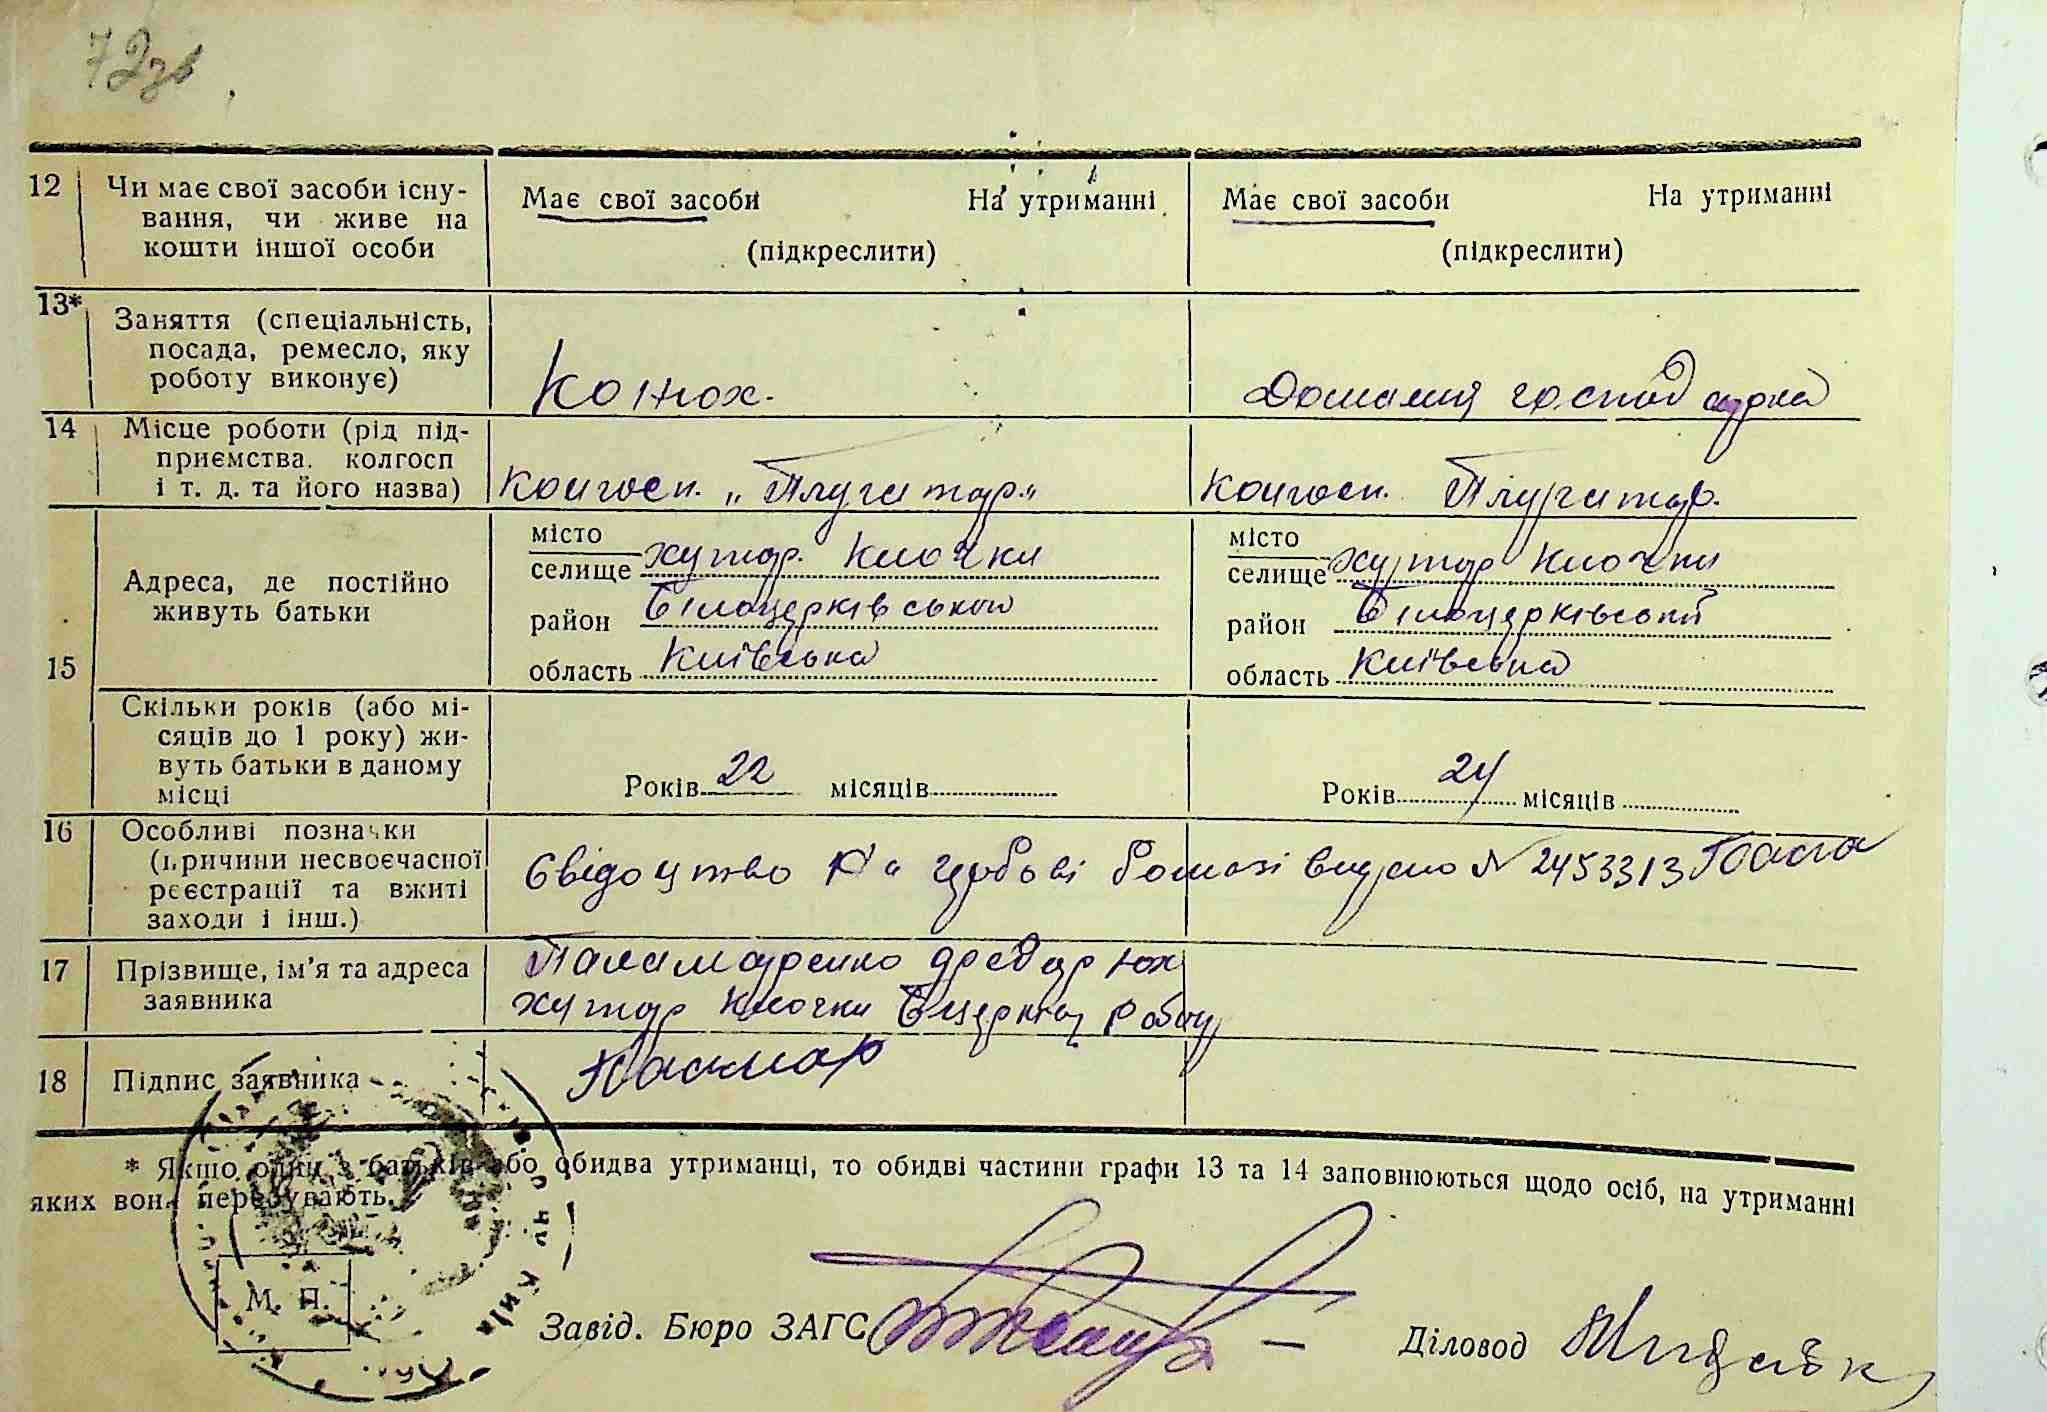 72зв
12 Чи має свої засоби існу- Має свої засоби На утриманні Має свої засоби На утриманні
вання, чи живе на
кошти іншої особи (підкреслити) (підкреслити)
13* Заняття (спеціальність,
посада, ремесло, яку
роботу виконує) Конюх. Домашня господарка
14 Місце роботи (рід під-
приємства, колгосп
і т. д. та його назва) Колгосп. „Плугатар" Колгосп. Плугатар.
15 Адреса, де постійно
живуть батьки
місто
селище хутар. Клочки
район Білоцерківський
область Київська
місто
селище хутар Клочки
район Білоцерківський
область Київська
Скільки років (або мі-
сяців до 1 року) жи-
вуть батьки в даному
місці
Років 22 місяців Років 24 місяців
16 Особливі позначки
(причини несвоєчасної
реєстрації та вжиті
заходи і інш.)
Свідоцтво на гербові бомазі видано № 2453313
17 Прізвище, ім'я та адреса
заявника
Паламаренко
хутар Клочки Бцерків
18 Підпис заявника
* Якщо один з батьків або обидва утриманці, то обидві частини графи 13 та 14 заповнюються щодо осіб, на утриманні
яких вони перебувають.
М. П.
Завід. Бюро ЗАГС Діловод